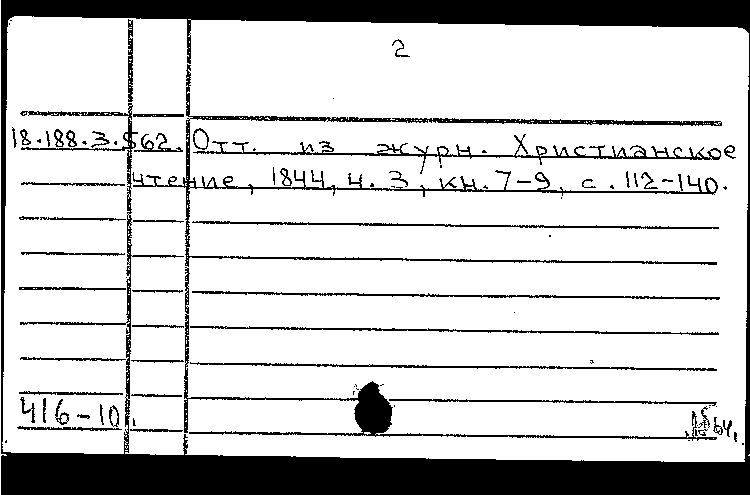 2
18.188.3.562. Отт. из журн. Христианское
чтение, 1844, ч. 3, кн. 7-9, с. 112-140.
416-10.